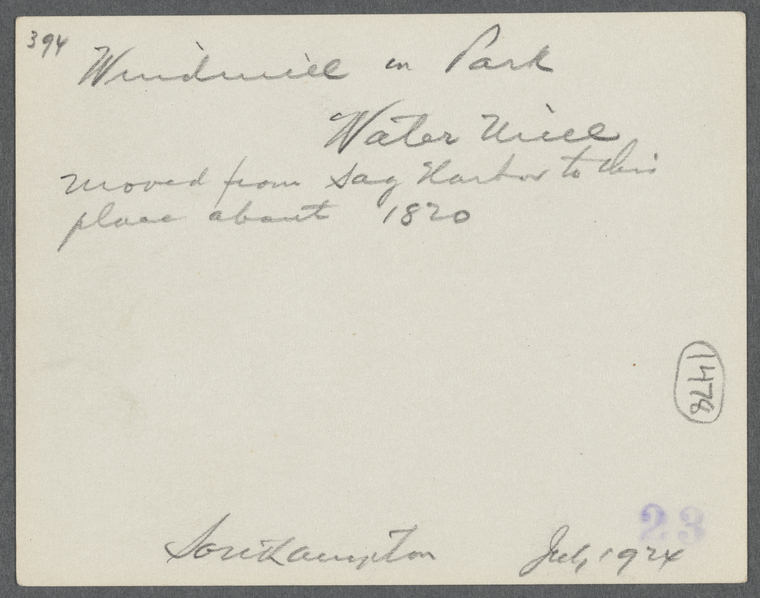 394
Windmill in Park
Water Mill
moved from Sag Harbor to this
place about 1820
1478
23
Southampton July 1924